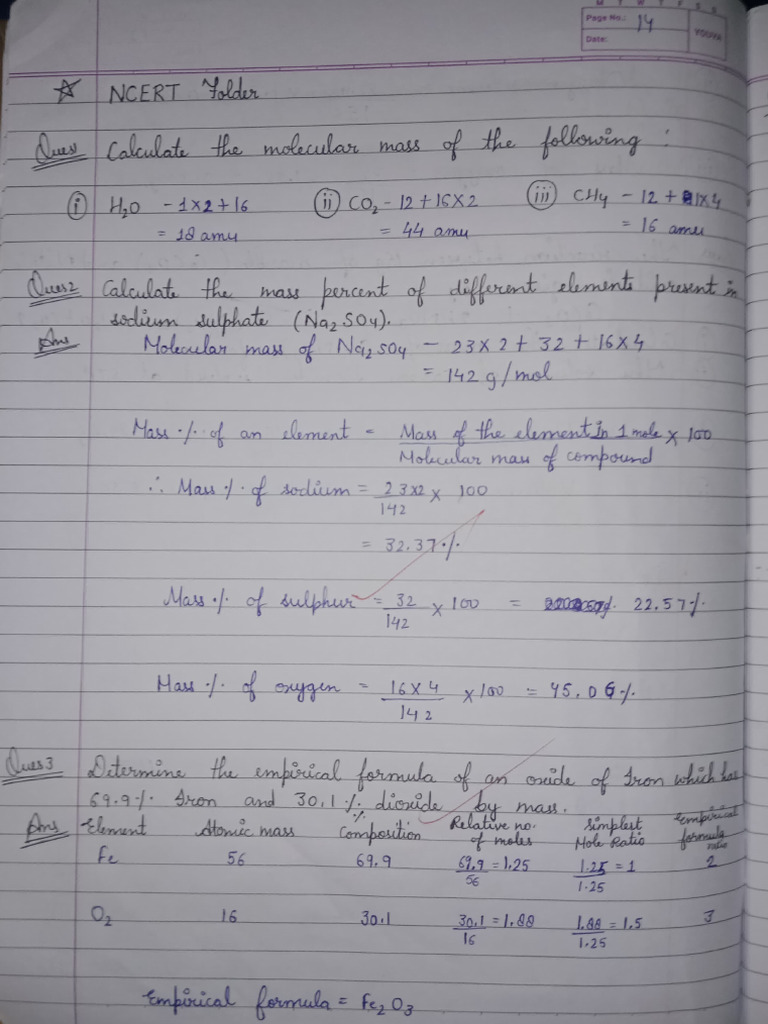 M T W T F S S
Page No.: 14
Date:
YOUVA
☆ NCERT Folder
Ques Calculate the molecular mass of the following :
(i) H2O - 1×2+16 (ii) CO2 - 12 + 16×2 (iii) CH4 - 12 + 1×4
= 18 amu = 44 amu = 16 amu
Ques2 Calculate the mass percent of different elements present in
sodium sulphate (Na2SO4).
Ans Molecular mass of Na2SO4 - 23×2 + 32 + 16×4
= 142 g/mol
Mass % of an element = Mass of the element in 1 mole × 100
Molecular mass of compound
∴ Mass % of sodium = 23×2 × 100
142
= 32.37%
Mass % of sulphur = 32 × 100 = 22.57%
142
Mass % of oxygen = 16×4 × 100 = 45.06%
142
Ques3 Determine the empirical formula of an oxide of Iron which has
69.9% Iron and 30.1% dioxide by mass.
Ans Element Atomic mass % Composition Relative no. of moles Simplest Mole Ratio Empirical formula ratio
Fe 56 69.9 69.9/56 = 1.25 1.25/1.25 = 1 2
O2 16 30.1 30.1/16 = 1.88 1.88/1.25 = 1.5 3
Empirical formula = Fe2O3